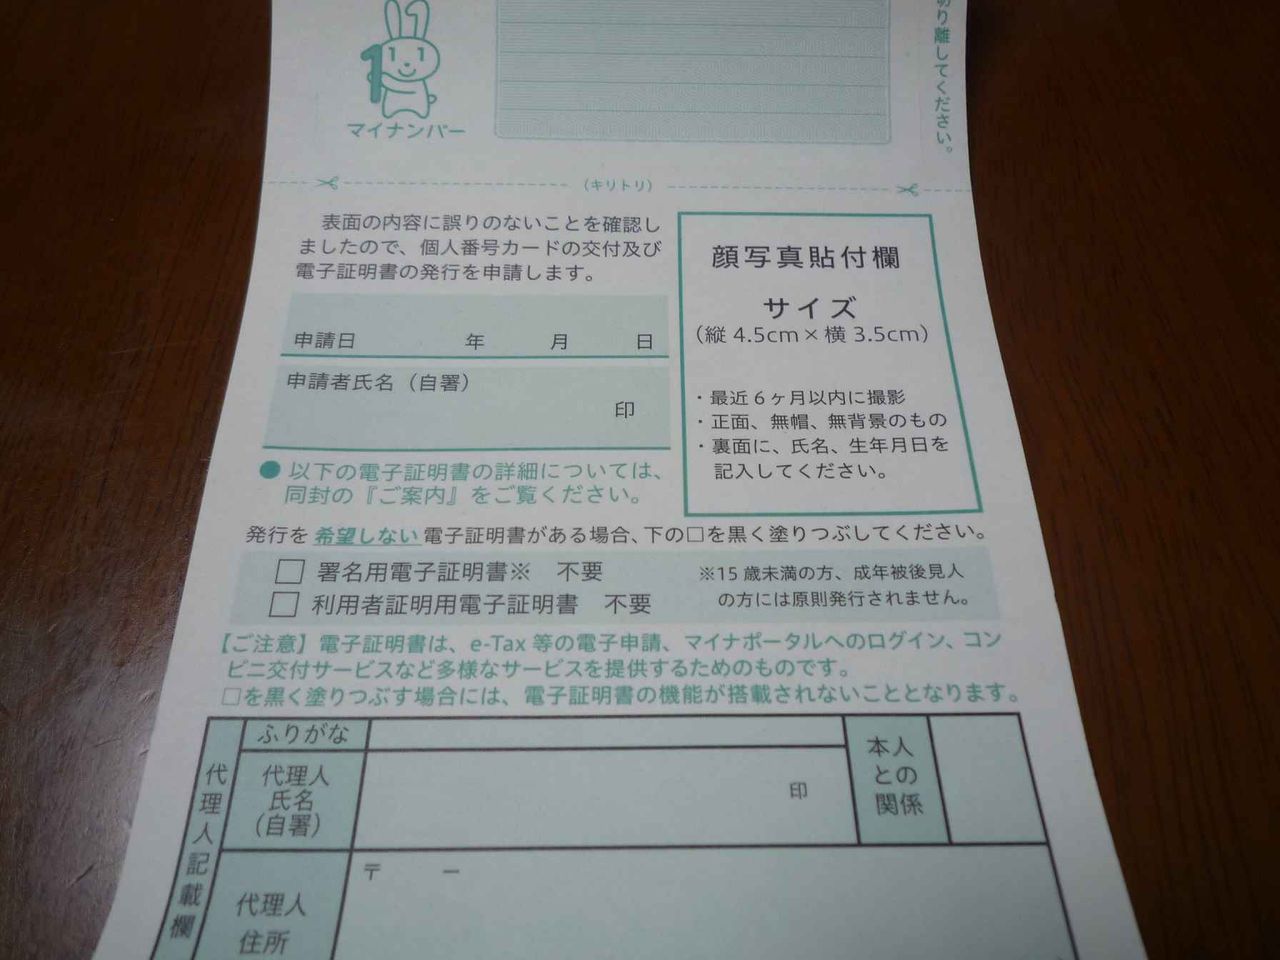 切り離してください。
マイナンバー
（キリトリ）
表面の内容に誤りのないことを確認し
ましたので、個人番号カードの交付及び
電子証明書の発行を申請します。
申請日 年 月 日
申請者氏名（自署）
印
顔写真貼付欄
サイズ
（縦 4.5cm×横 3.5cm）
・最近６ヶ月以内に撮影
・正面、無帽、無背景のもの
・裏面に、氏名、生年月日を
記入してください。
●以下の電子証明書の詳細については、
同封の『ご案内』をご覧ください。
発行を希望しない電子証明書がある場合、下の□を黒く塗りつぶしてください。
□ 署名用電子証明書※ 不要
□ 利用者証明用電子証明書 不要
※15 歳未満の方、成年被後見人
の方には原則発行されません。
【ご注意】電子証明書は、e-Tax 等の電子申請、マイナポータルへのログイン、コン
ビニ交付サービスなど多様なサービスを提供するためのものです。
□を黒く塗りつぶす場合には、電子証明書の機能が搭載されないこととなります。
代理人記載欄
ふりがな
代理人
氏名
（自署）
印
本人
との
関係
代理人
住所
〒 ー